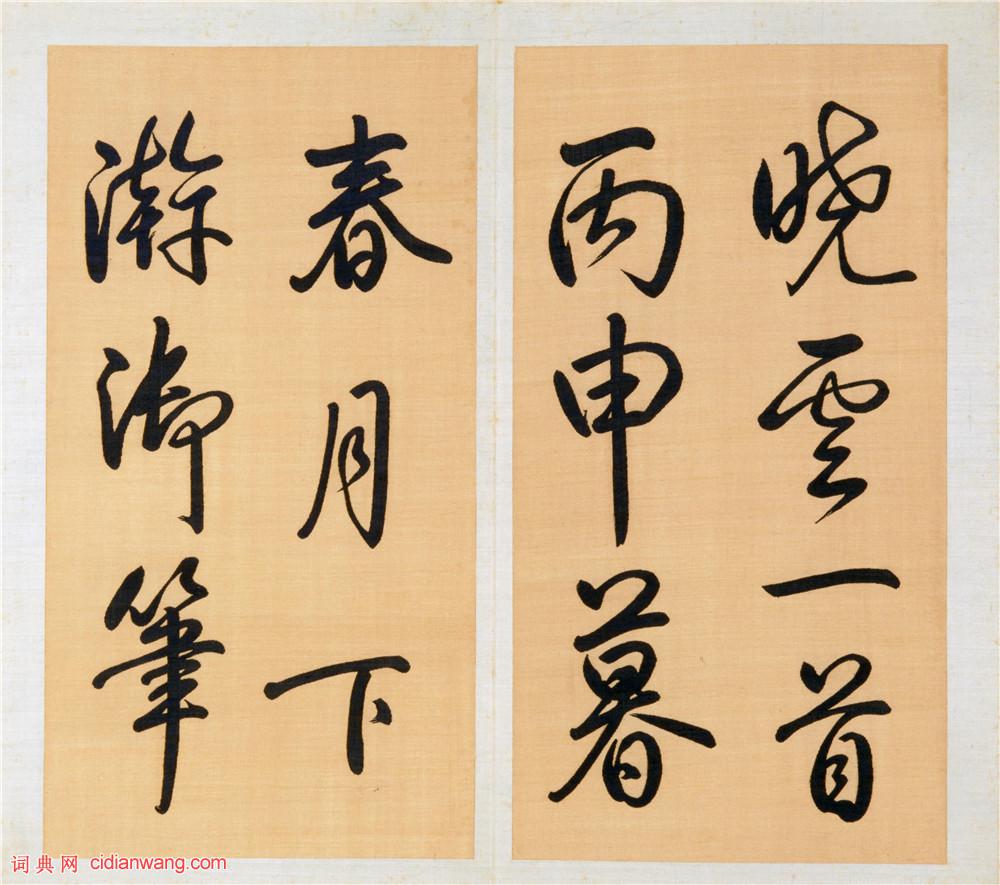 曉雲一首
丙申暮
春月下
澣御筆
词典网 cidianwang.com